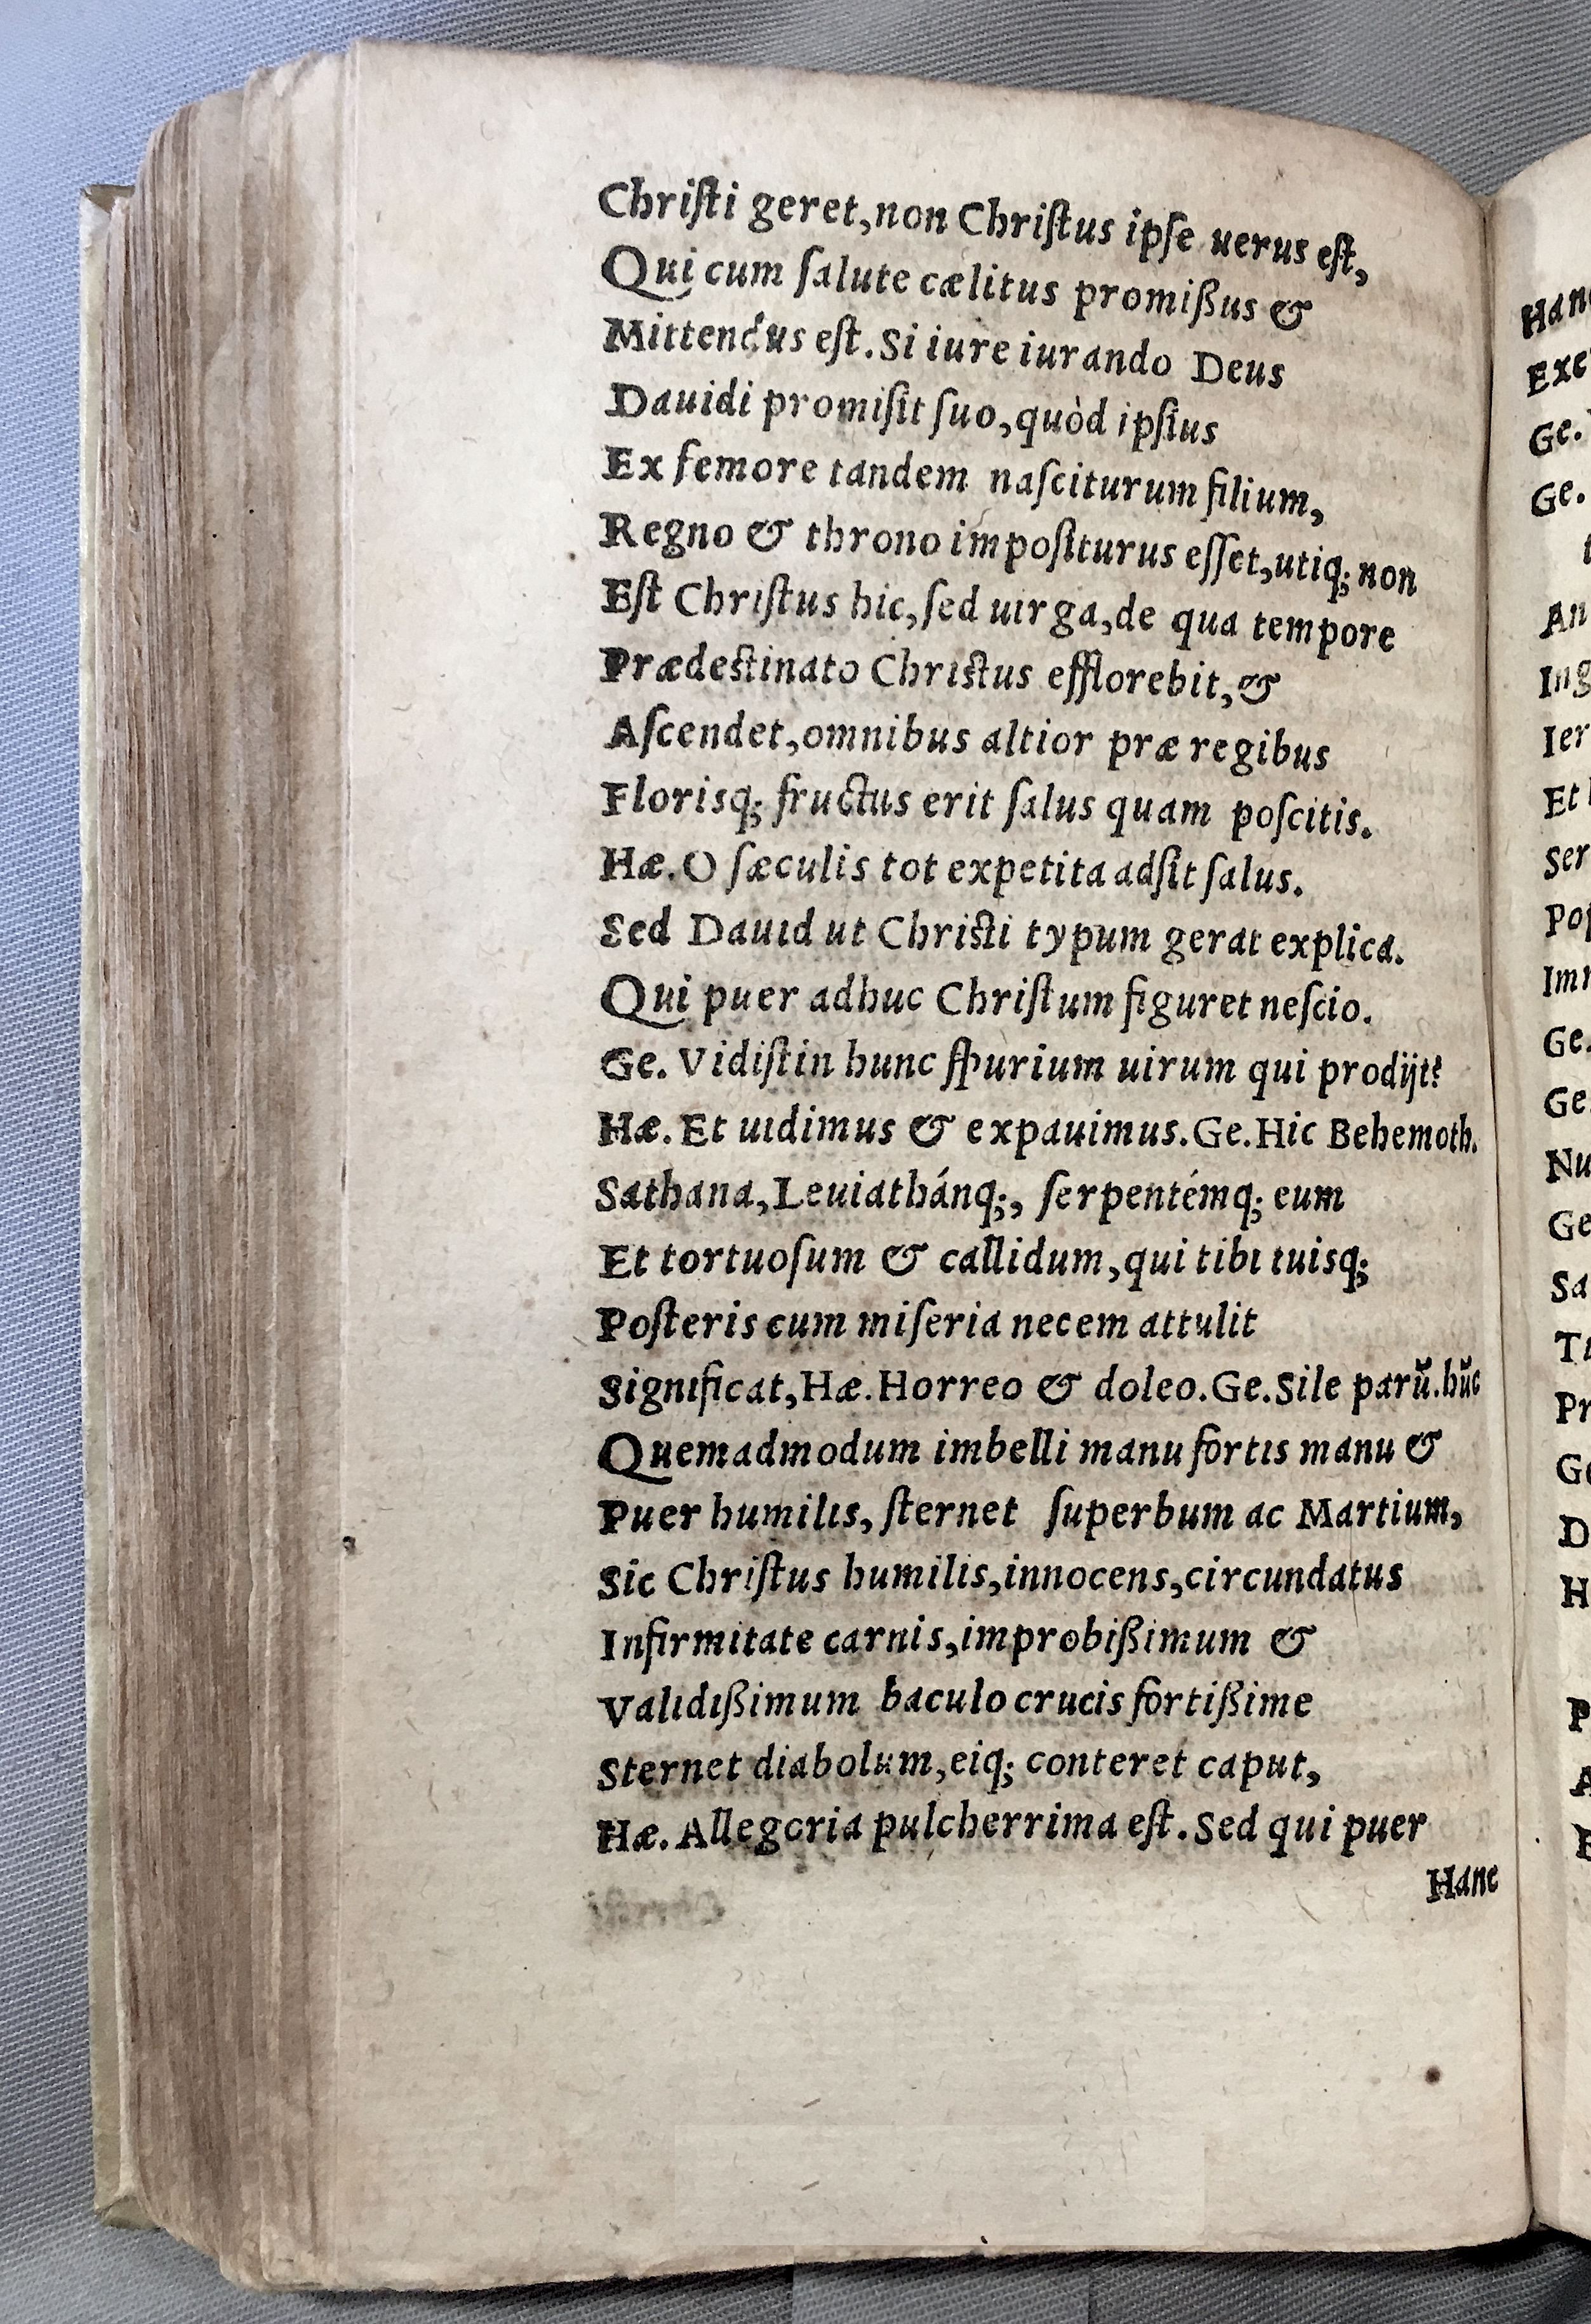 Chriſti geret, non Chriſtus ipſe uerus eſt,
Qui cum ſalute cælitus promißus &
Mittendus eſt. Si iure iurando Deus
Dauidi promiſit ſuo, quòd ipſius
Ex femore tandem naſciturum filium,
Regno & throno impoſiturus eſſet, utiq; non
Eſt Chriſtus hic, ſed uirga, de qua tempore
Prædeſtinato Chriſtus efflorebit, &
Aſcendet, omnibus altior præ regibus
Florisq; fructus erit ſalus quam poſcitis.
Hæ. O ſæculis tot expetita adſit ſalus.
Sed Dauid ut Chriſti typum gerat explica.
Qui puer adhuc Chriſtum figuret neſcio.
Ge. Vidiſtin hunc ſpurium uirum qui prodijt?
Hæ. Et uidimus & expauimus. Ge. Hic Behemoth.
Sathana, Leuiathánq;, ſerpentémq; eum
Et tortuoſum & callidum, qui tibi tuisq;
Poſteris cum miſeria necem attulit
Significat, Hæ. Horreo & doleo. Ge. Sile parũ. hũc
Quemadmodum imbelli manu fortis manu &
Puer humilis, ſternet ſuperbum ac Martium,
Sic Chriſtus humilis, innocens, circundatus
Infirmitate carnis, improbißimum &
Validißimum baculo crucis fortißime
Sternet diabolum, eiq; conteret caput,
Hæ. Allegoria pulcherrima eſt. Sed qui puer
Hanc
Hanc
Exe
Ge.
Ge.
t
An
Ing
Ier
Et
Ser
Poſ
Im
Ge.
Ge
Nu
Ge
Sa
Pr
D
H
P